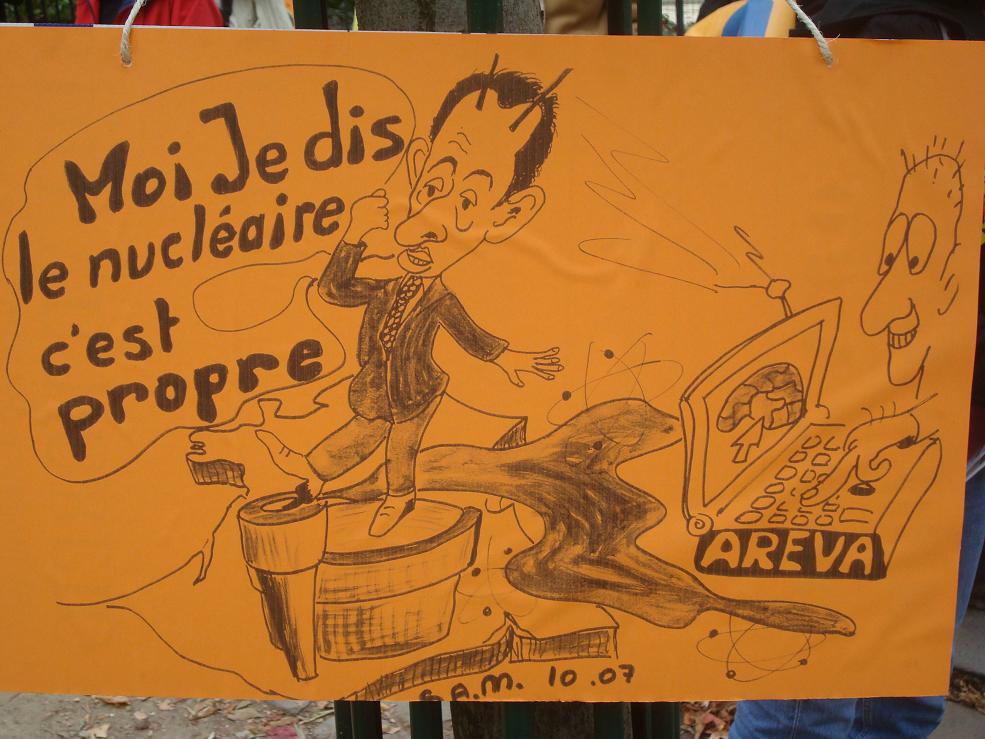 Moi Je dis
le nucléaire
c'est
propre
AREVA
S.A.M. 10.07